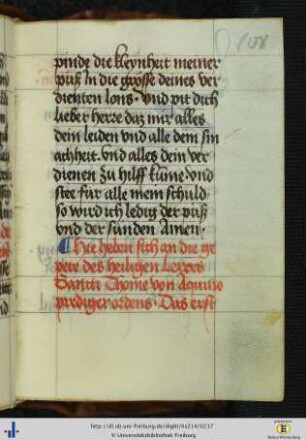 108
pinde die kleynheit meiner
puß in die grosse deines ver
dienten lons. vnd pit dich
lieber herre daz mir alles
dein leiden vnd alle dein sm
achheit. vnd alles dein ver
dienen zu hilff kume. vnd
stee für alle mein schuld
so wird ich ledig der puß
vnd der sunden Amen.
Hie heben sich an die ge
pete des heiligen Lerers
Sancti Thome von Aquino
prediger ordens. Das erst
http://dl.ub.uni-freiburg.de/diglit/hs214/0217
© Universitätsbibliothek Freiburg